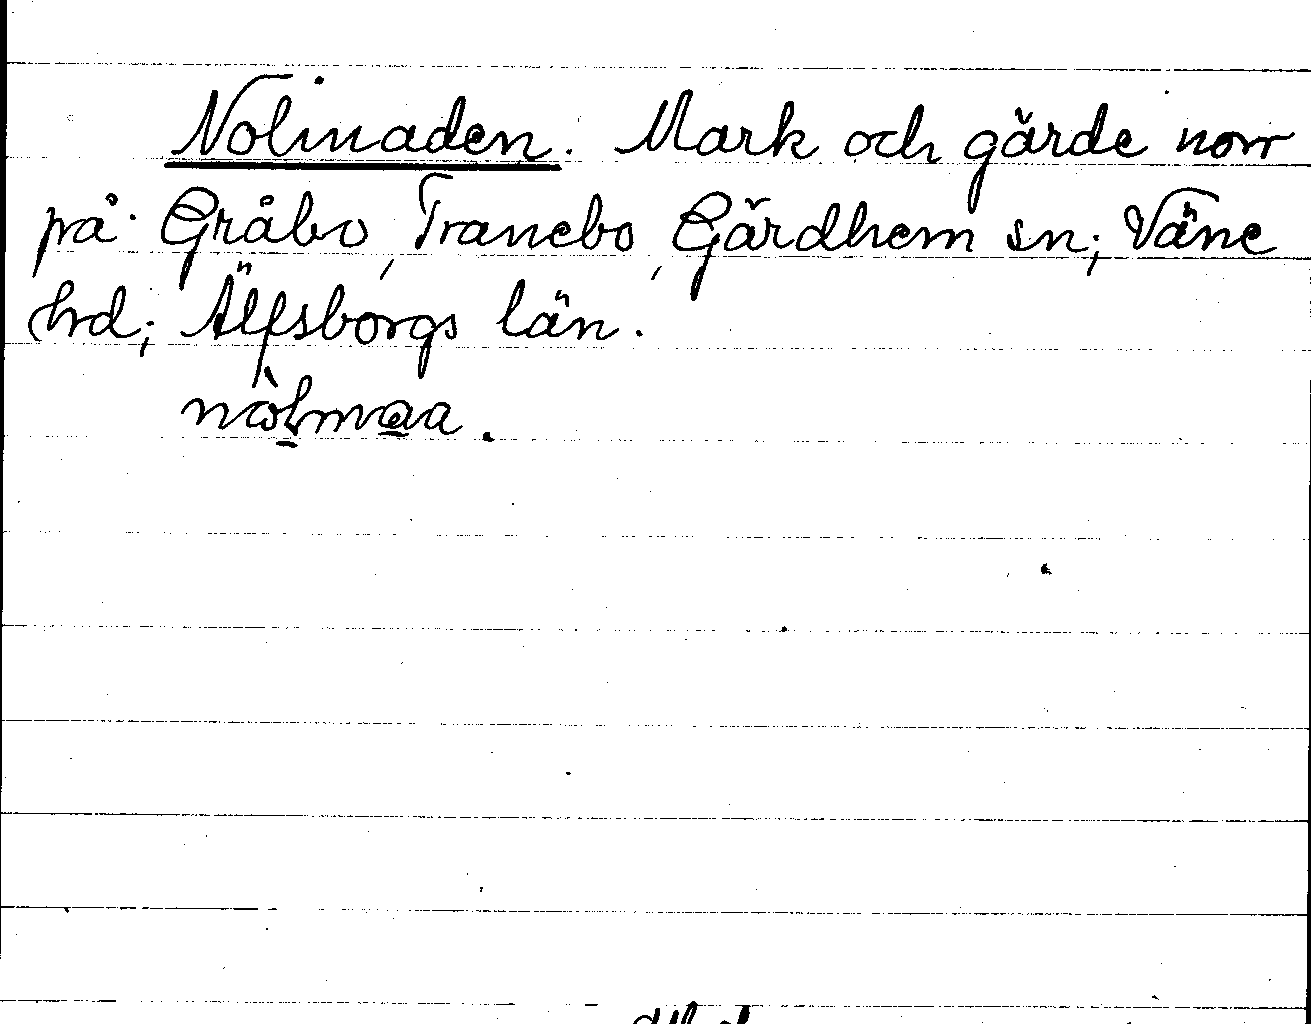 Nolmaden. Mark och gärde norr
på Gråbo, Tranebo, Gärdhem sn; Väne
hrd; Älfsborgs län.
nòlmaa.